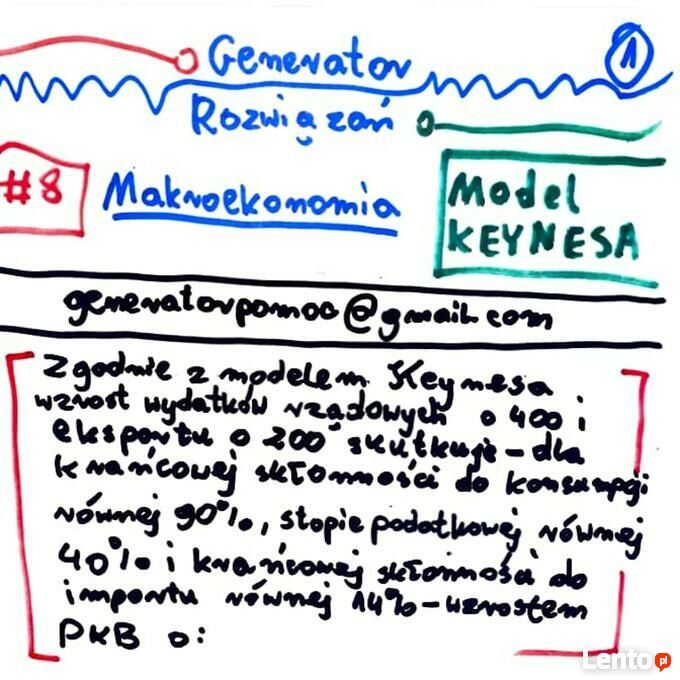 Generator
1
Rozwiązań
#8
Makroekonomia
Model
KEYNESA
generatorpomoc@gmail.com
Zgodnie z modelem Keynesa
wzrost wydatków rządowych o 400 i
eksportu o 200 skutkuje - dla
krańcowej skłonności do konsumpcji
równej 90%, stopie podatkowej równej
40% i krańcowej skłonności do
importu równej 14% - wzrostem
PKB o:
Lento.pl